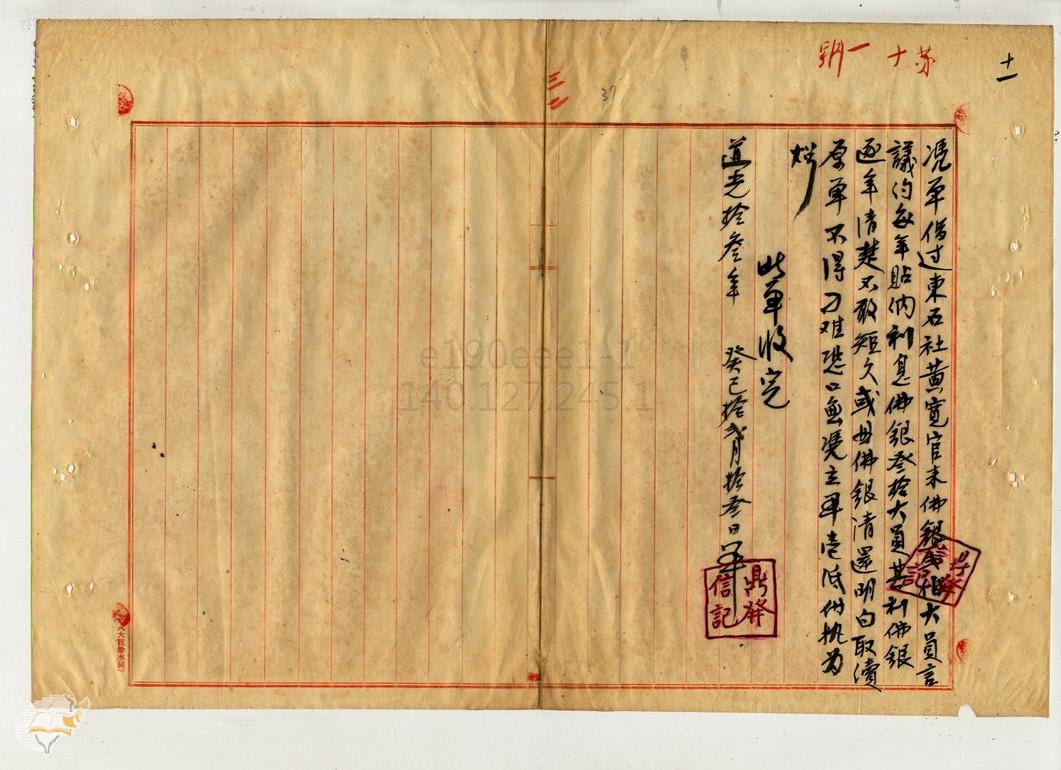 十一
第十一號
憑單借過東石社黃寬官來佛銀貳拾大員言
議約每年貼納利息佛銀叁拾大員其利佛銀
逐年清楚不敢短欠或母佛銀清還明白取瀆
原單不得刁难恐口無憑立單壱纸付执为
炤
此单收完
道光拾叁年 癸巳拾弍月拾叁日单
鼎發
信記
三七
37
e190eee1-1
140.127.245.1